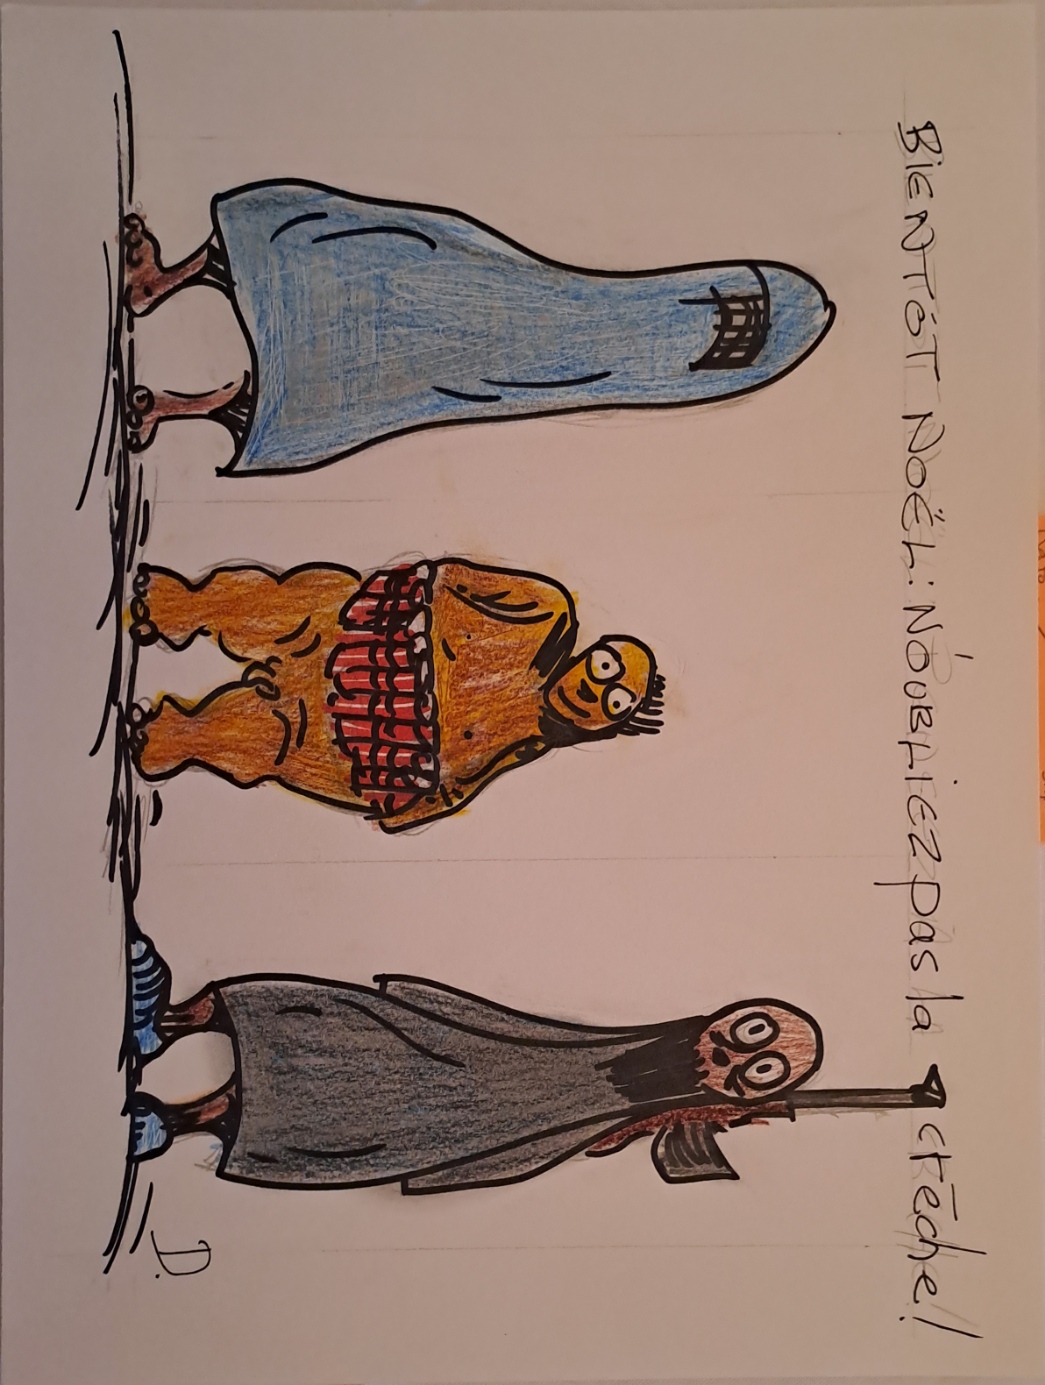 BIENTÔT NOËL: N'OUBLIEZ PAS la CRÈCHE!
D.